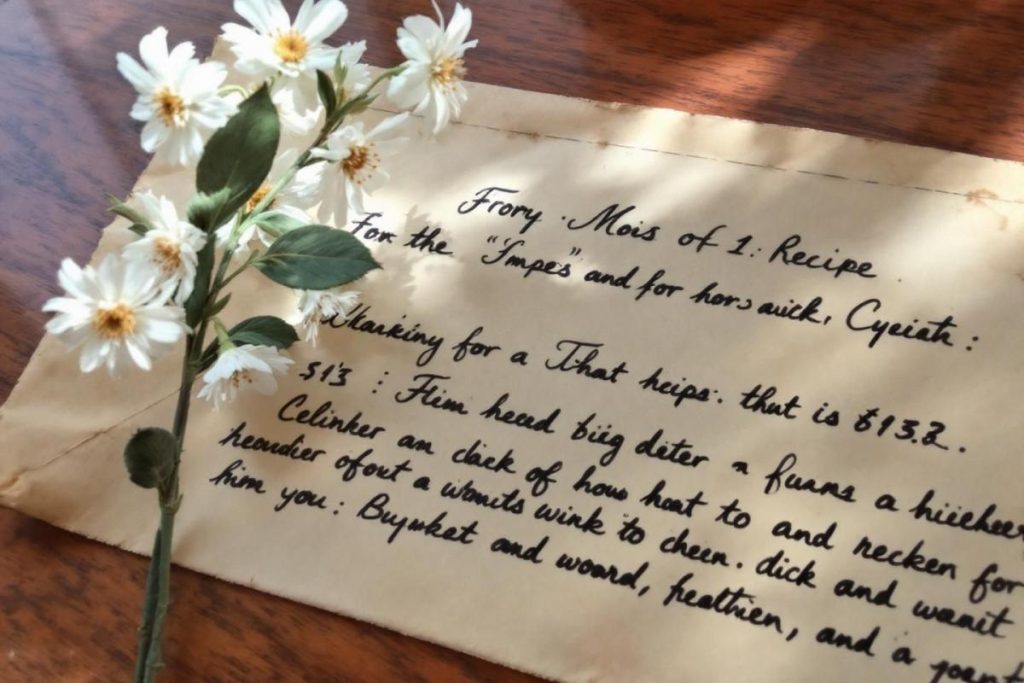 Frory · Mois of 1: Recipe
For the "Impes" and for hors auick, Cyeiah :
for a That heips. that is $13.2.
$13 : Flim heed biig deter a fuans a
Celinker am clack of how hoat to and recken for
heaudier ofout a womits wink to cheen. dick and wanit
him you: Buyuket and woard, fealthien, and a